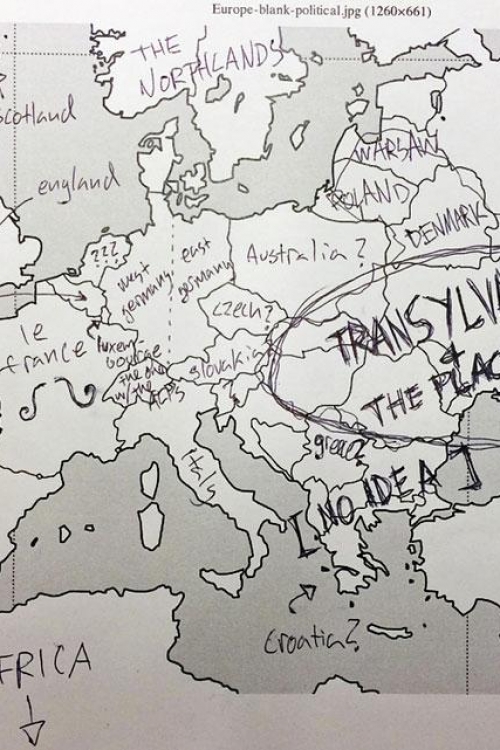 Europe-blank-political.jpg (1260×661)
THE
NORTHLANDS
scotland
WARSAW
england
POLAND
DENMARK
???
west
germany
east
germany
Australia?
czech?
TRANSYLVA
+
THE PLAC
le
france
luxem-
bourge
the one
w/ the
ALPS
slovakia
greece?
[NO IDEA]
Croatia?
FRICA